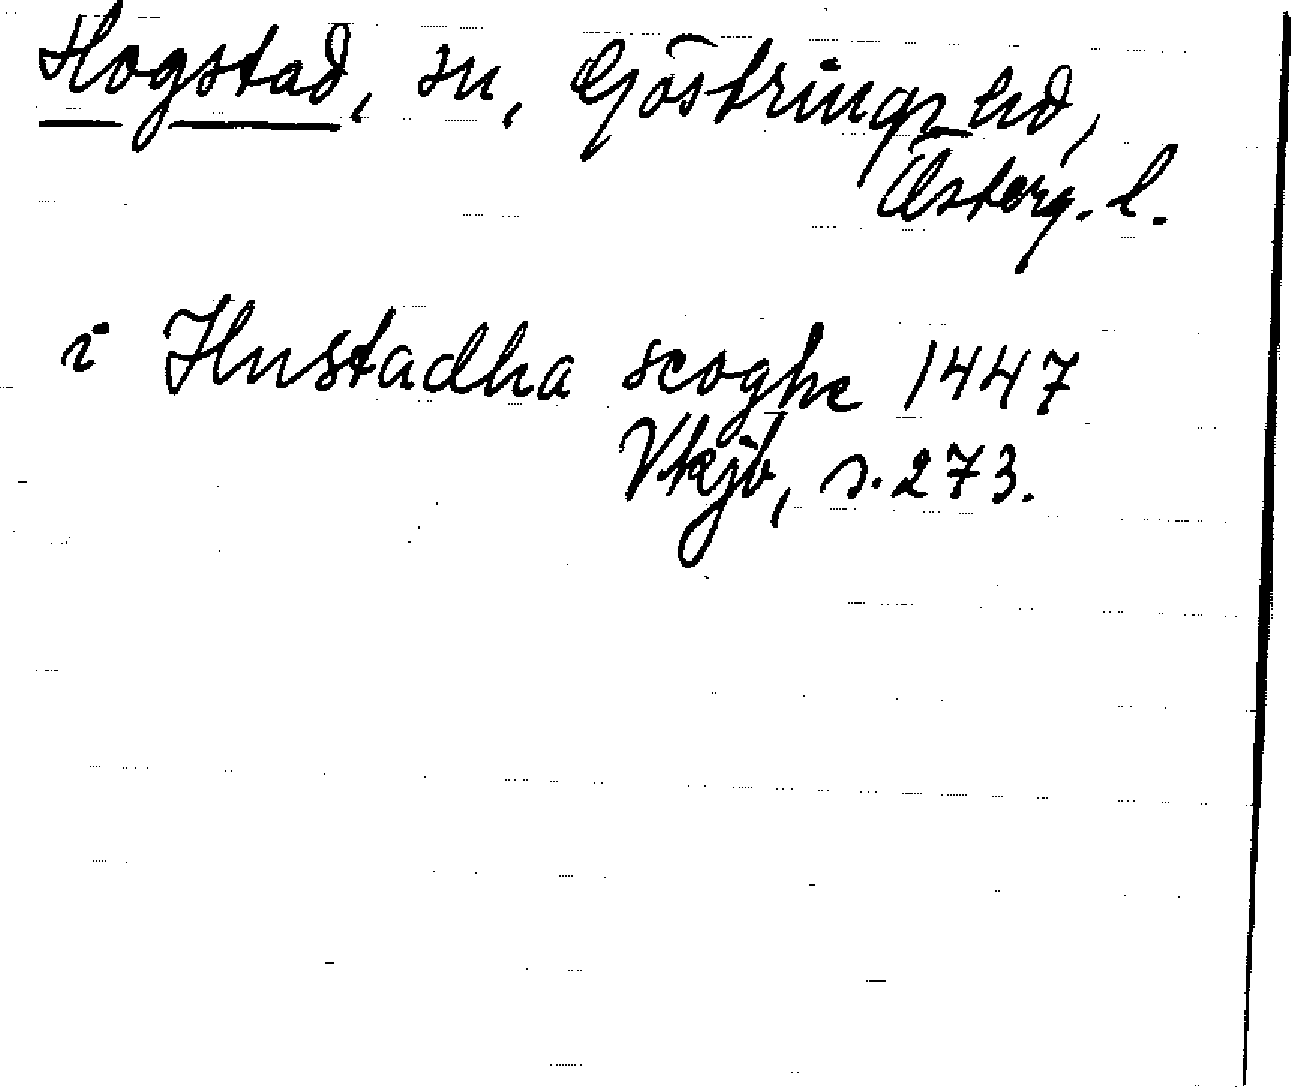 Hogstad, sn, Göstrings hd,
Österg. l.
i Hustadha scoghe 1447
Vkjb, s. 273.